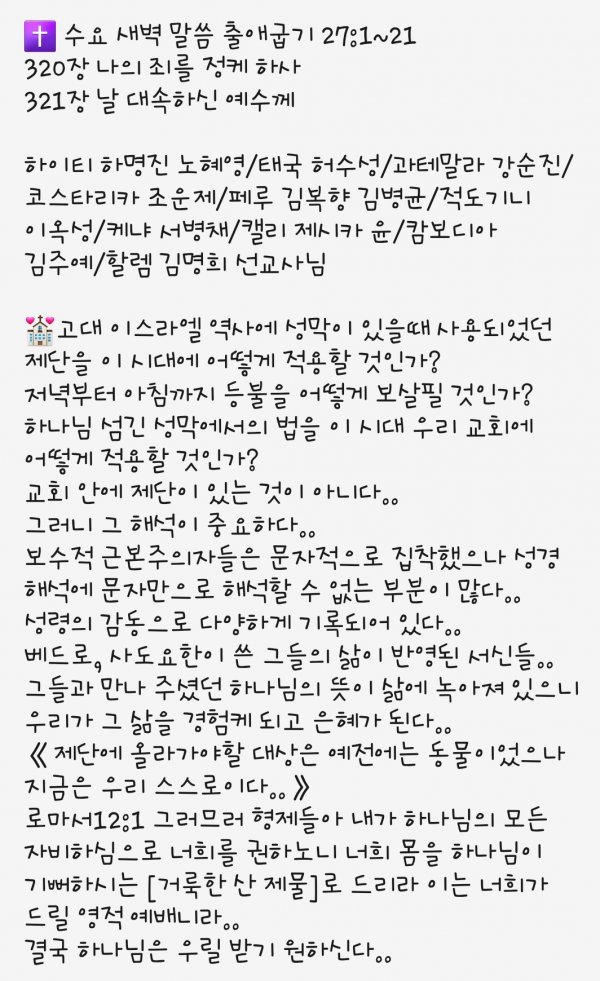 ✝️ 수요 새벽 말씀 출애굽기 27:1~21
320장 나의 죄를 정케 하사
321장 날 대속하신 예수께
하이티 하명진 노혜영/태국 허수성/과테말라 강순진/
코스타리카 조운제/페루 김복향 김병균/적도기니
이옥성/케냐 서병채/캘리 제시카 윤/캄보디아
김주예/할렘 김명희 선교사님
💒고대 이스라엘 역사에 성막이 있을때 사용되었던
제단을 이 시대에 어떻게 적용할 것인가?
저녁부터 아침까지 등불을 어떻게 보살필 것인가?
하나님 섬긴 성막에서의 법을 이 시대 우리 교회에
어떻게 적용할 것인가?
교회 안에 제단이 있는 것이 아니다。。
그러니 그 해석이 중요하다。。
보수적 근본주의자들은 문자적으로 집착했으나 성경
해석에 문자만으로 해석할 수 없는 부분이 많다。。
성령의 감동으로 다양하게 기록되어 있다。。
베드로, 사도요한이 쓴 그들의 삶이 반영된 서신들。。
그들과 만나 주셨던 하나님의 뜻이 삶에 녹아져 있으니
우리가 그 삶을 경험케 되고 은혜가 된다。。
《 제단에 올라가야할 대상은 예전에는 동물이었으나
지금은 우리 스스로이다。。》
로마서12:1 그러므러 형제들아 내가 하나님의 모든
자비하심으로 너희를 권하노니 너희 몸을 하나님이
기뻐하시는 [거룩한 산 제물]로 드리라 이는 너희가
드릴 영적 예배니라。。
결국 하나님은 우릴 받기 원하신다。。